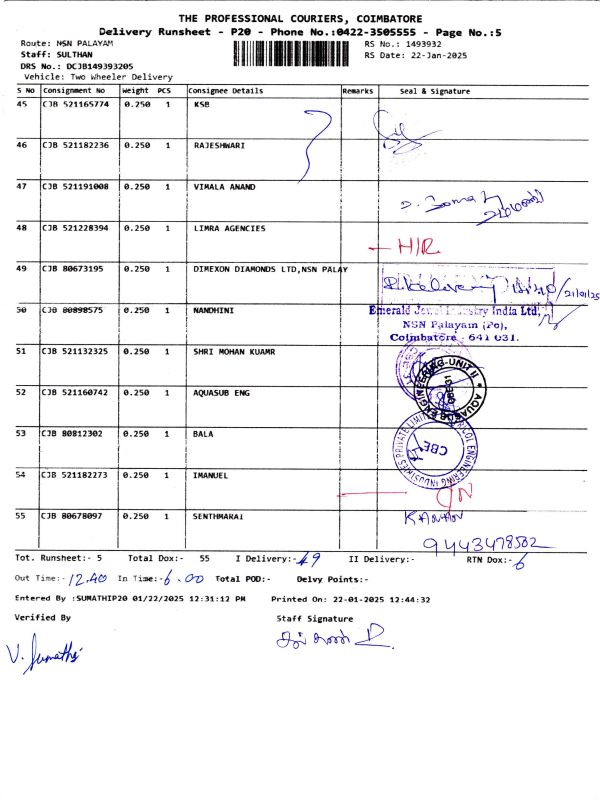 THE PROFESSIONAL COURIERS, COIMBATORE
Delivery Runsheet - P20 - Phone No.:0422-3505555 - Page No.:5
Route: NSN PALAYAM RS No.: 1493932
Staff: SULTHAN RS Date: 22-Jan-2025
DRS No.: DCJB149393205
Vehicle: Two Wheeler Delivery
S No Consignment No Weight PCS Consignee Details Remarks Seal & Signature
45 CJB 521165774 0.250 1 KSB
46 CJB 521182236 0.250 1 RAJESHWARI
47 CJB 521191008 0.250 1 VIMALA ANAND
48 CJB 521228394 0.250 1 LIMRA AGENCIES
H/R
49 CJB 80673195 0.250 1 DIMEXON DIAMONDS LTD,NSN PALAY
21/01/25
50 CJB 80898575 0.250 1 NANDHINI
Emerald Jewel Industry India Ltd,
NSN Palayam (Po),
Coimbatore - 641 031.
51 CJB 521132325 0.250 1 SHRI MOHAN KUAMR
52 CJB 521160742 0.250 1 AQUASUB ENG
AQUASUB ENGINEERING-UNIT II
53 CJB 80812302 0.250 1 BALA
ENGINEERING INDUSTRIES PRIVATE LIMITED
CBE
54 CJB 521182273 0.250 1 IMANUEL
55 CJB 80678097 0.250 1 SENTHMARAI
KANNAN
9443478502
Tot. Runsheet:- 5 Total Dox:- 55 I Delivery:- 49 II Delivery:- RTN Dox:- 6
Out Time:- 12.40 In Time:- 6.00 Total POD:- Delvy Points:-
Entered By :SUMATHIP20 01/22/2025 12:31:12 PM Printed On: 22-01-2025 12:44:32
Verified By Staff Signature
V. Sumathi